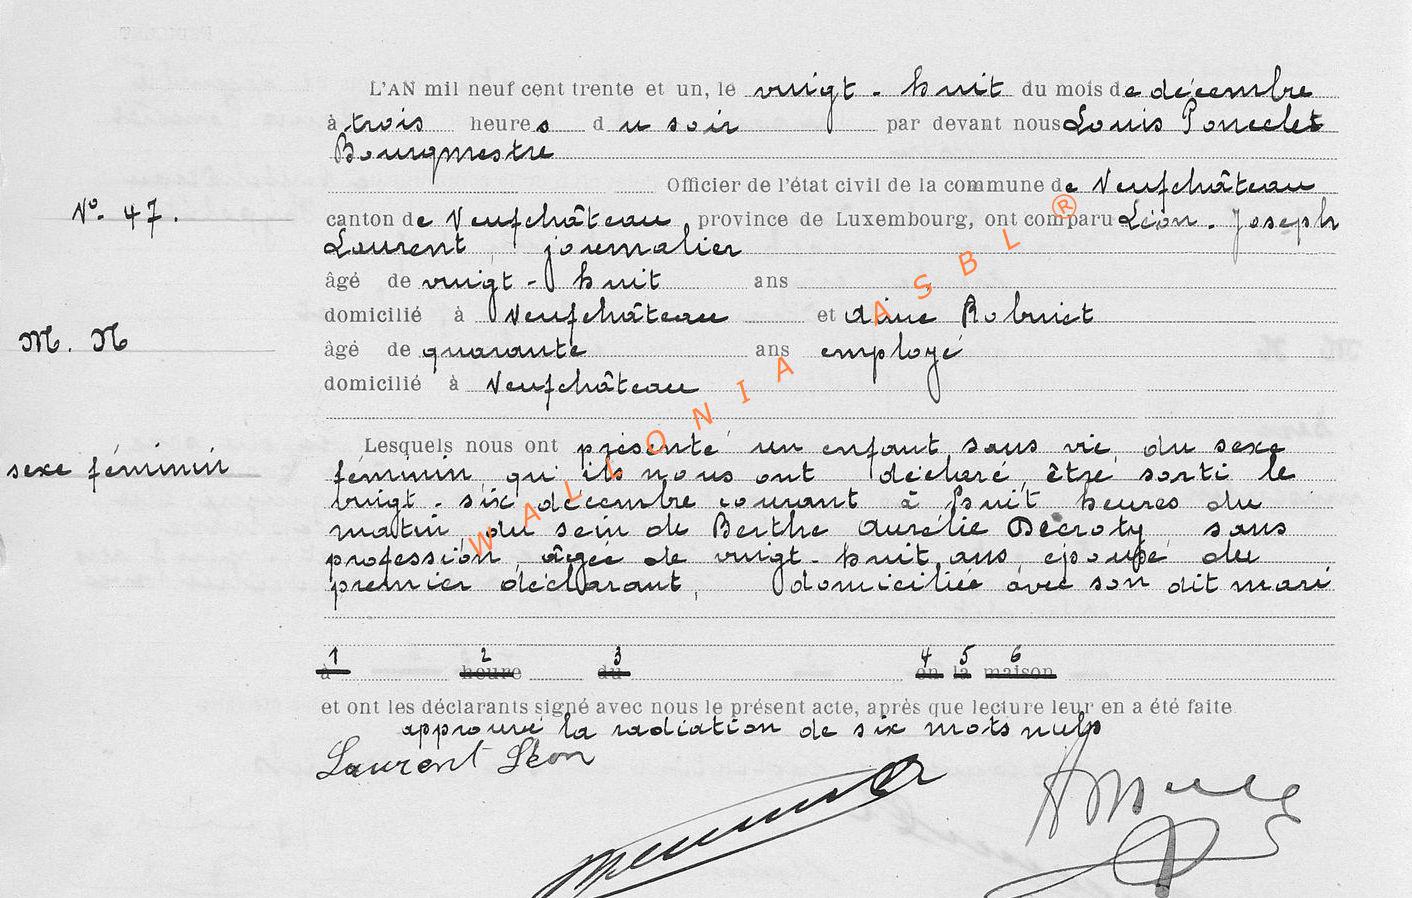 L'AN mil neuf cent trente et un, le vingt-huit du mois de décembre
à trois heures du soir par devant nous Louis Poncelet
Bourgmestre
Officier de l'état civil de la commune de Neufchâteau
N° 47.
canton de Neufchâteau, province de Luxembourg, ont comparu Léon-Joseph
Laurent, journalier
âgé de vingt-huit ans
domicilié à Neufchâteau et Aimé
M. N
âgé de quarante ans employé
domicilié à Neufchâteau
Lesquels nous ont présenté un enfant sans vie, du sexe
sexe féminin
féminin, qu'ils nous ont déclaré, être sorti le
vingt-six décembre courant à huit heures du
matin, du sein de Berthe Aurélie Décroty, sans
profession, âgée de vingt-huit ans, épouse du
premier déclarant, domiciliée avec son dit mari
1 2 3 4 5 6
à heure du en la maison
et ont les déclarants signé avec nous le présent acte, après que lecture leur en a été faite
approuvé la radiation de six mots nuls
Laurent Léon
WALLONIA ASBL ®